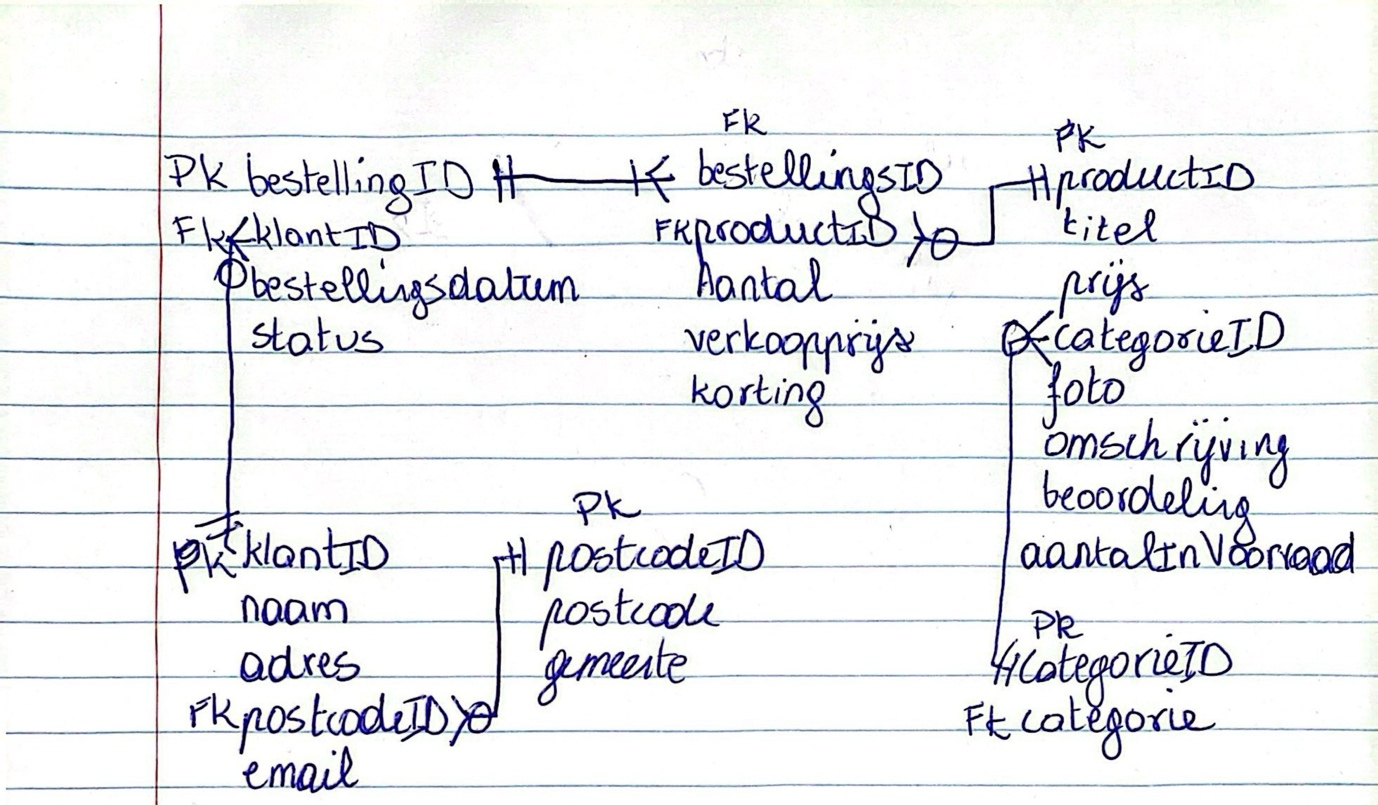 PK bestellingID
FK klantID
bestellingsdatum
status
FK
bestellingsID
FK productID
Aantal
verkoopprijs
korting
PK
productID
titel
prijs
categorieID
foto
omschrijving
beoordeling
aantalInVoorraad
PK klantID
naam
adres
FK postcodeID
email
PK
postcodeID
postcode
gemeente
PK
categorieID
FK categorie